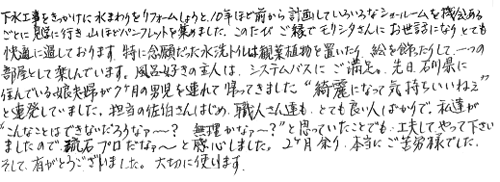 下水工事をきっかけに水まわりをリフォームしようと、10年ほど前から計画していろいろなショールームを機会ある
ごとに見に行き山ほどパンフレットを集めました。このたびご縁でモリシタさんにお世話になりとても
快適に過しております。特に念願だった水洗トイレは観葉植物を置いたり、絵を飾ったりして、一つの
部屋として楽しんでいます。風呂好きの主人は、システムバスにご満足。先日、石川県に
住んでいる娘夫婦が7ヶ月の男児を連れて帰ってきました "綺麗になって気持ちいいねぇ"
と連発していました。担当の佐伯さんはじめ、職人さん達も、とても良い人ばかりで、私達が
"こんなことはできないだろうなァ〜? 無理かなァ〜?" と思っていたことでも、工夫してやって下さい
ましたので、流石プロだなァ〜と感心しました。2ヶ月余り、本当にご苦労様でした。
そして、有がとうございました。大切に使います。